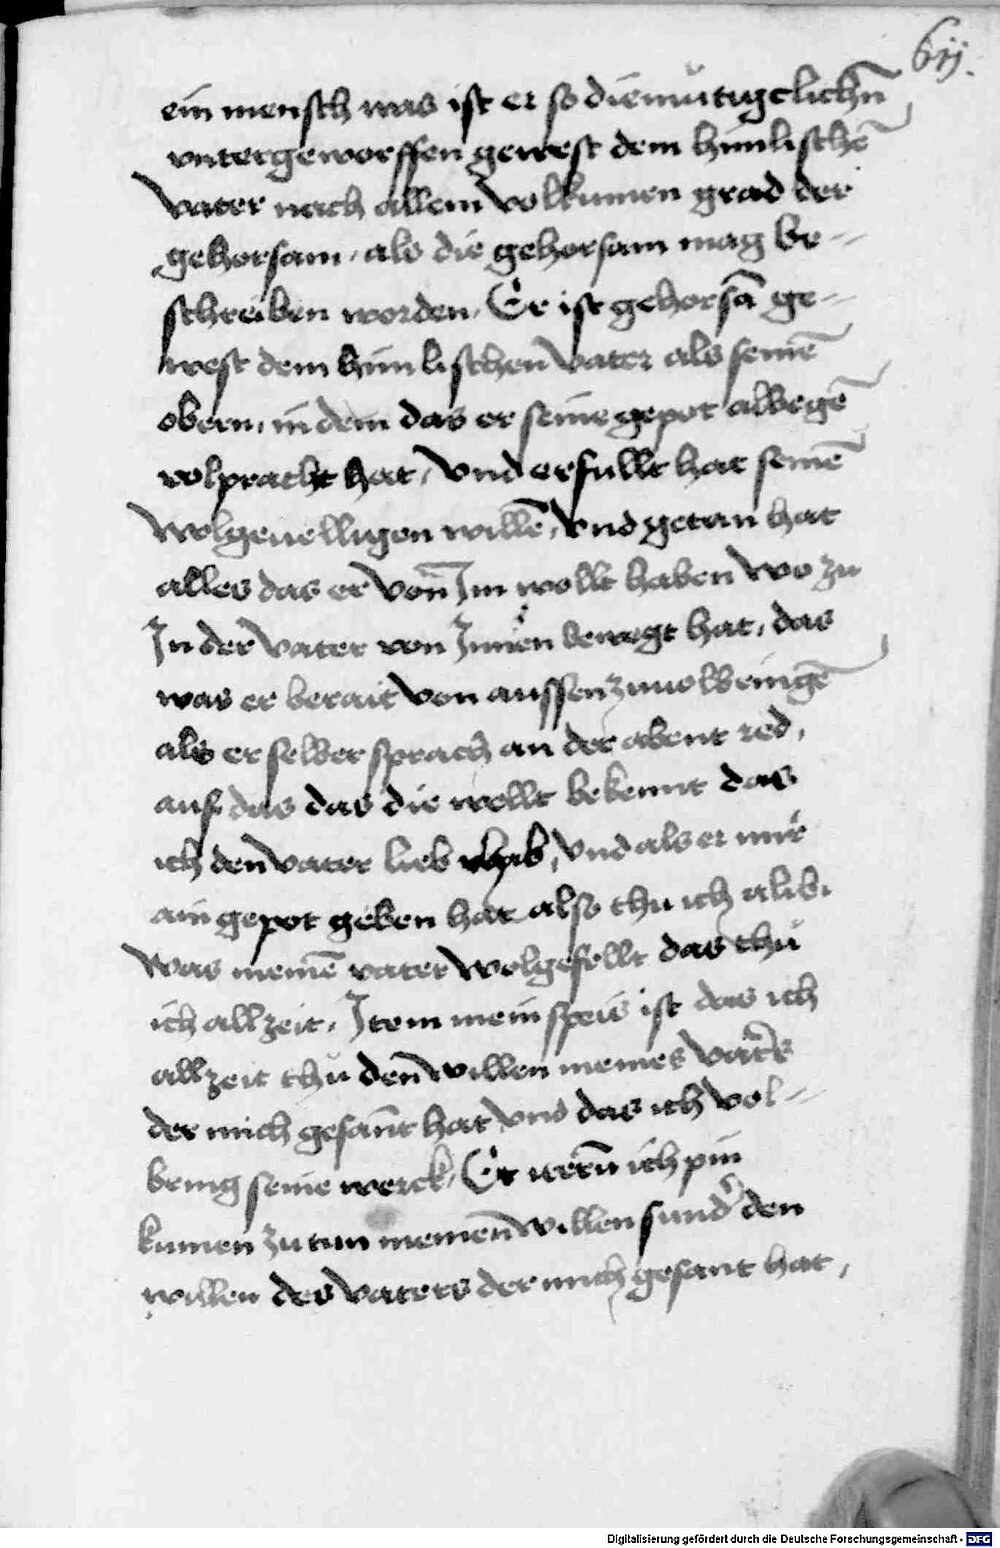 6ij.
ein mensch was ist er so diemůtigclichn̄
vntergeworffen gewest dem himlischē
vater nach allem volkumen grad der
gehorsam, als die gehorsam mag be-
schreiben worden, Er ist gehorsā ge-
west dem himlischen vater als seinē
obern, in dem das er seine gepot albegē
volpracht hat, vnd erfullt hat seinē
wolgeuelligen willē, vnd getan hat
alles das er von̄ Im wollt haben wo zu
In der vater von Innen bewegt hat, das
was er berait von aussen zuuolbringē
als er selber sprach an der abent red,
auf das das die wellt bekennt das
ich den vater lieb hab, vnd als er mir
ain gepot geben hat also thu ich alibi
was meinē vater wolgefellt das thů
ich allzeit, Item mein speis ist das ich
allzeit thů den̄ willen meines vaters
der mich gesan̄t hat vnd das ich vol-
bring seine werck, Et iterū ich pin
kumen zu tun meinen̄ willen sunder den
willen des vaters der mich gesant hat,
Digitalisierung gefördert durch die Deutsche Forschungsgemeinschaft - DFG